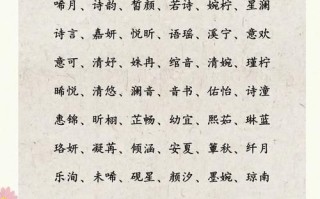 唏月、诗韵、皙颜、若诗、婉柠、星澜
诗言、嘉妍、悦昕、语瑶、溪宁、意欢
意可、清妤、姝冉、绾音、清婉、瑾柠
晞悦、清悠、澜音、音书、佑怡、诗潼
惠锦、昕栩、芷畅、幼宜、熙茹、琳蓝
珞妍、凝苒、倾涵、安夏、蕈秋、纤月
乐洵、未唏、砚星、颜汐、墨婉、琼南